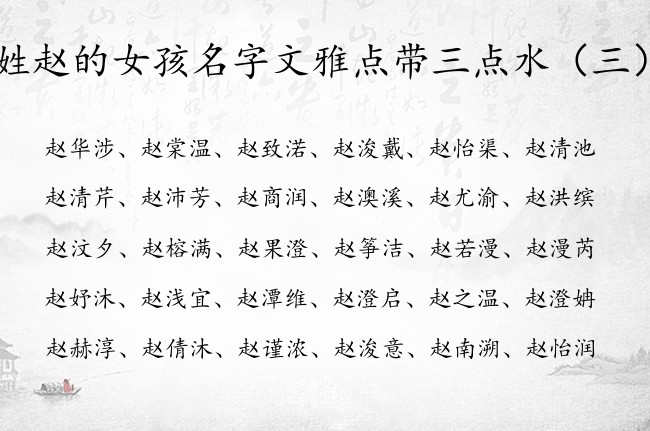 姓赵的女孩名字文雅点带三点水（三）
赵华涉、赵棠温、赵致渃、赵浚戴、赵怡渠、赵清池
赵清芹、赵沛芳、赵商润、赵澳溪、赵尤渝、赵洪缤
赵汶夕、赵榕满、赵果澄、赵筝洁、赵若漫、赵漫芮
赵妤沐、赵浅宜、赵潭维、赵澄启、赵之温、赵澄姌
赵赫淳、赵倩沐、赵谨浓、赵浚意、赵南溯、赵怡润